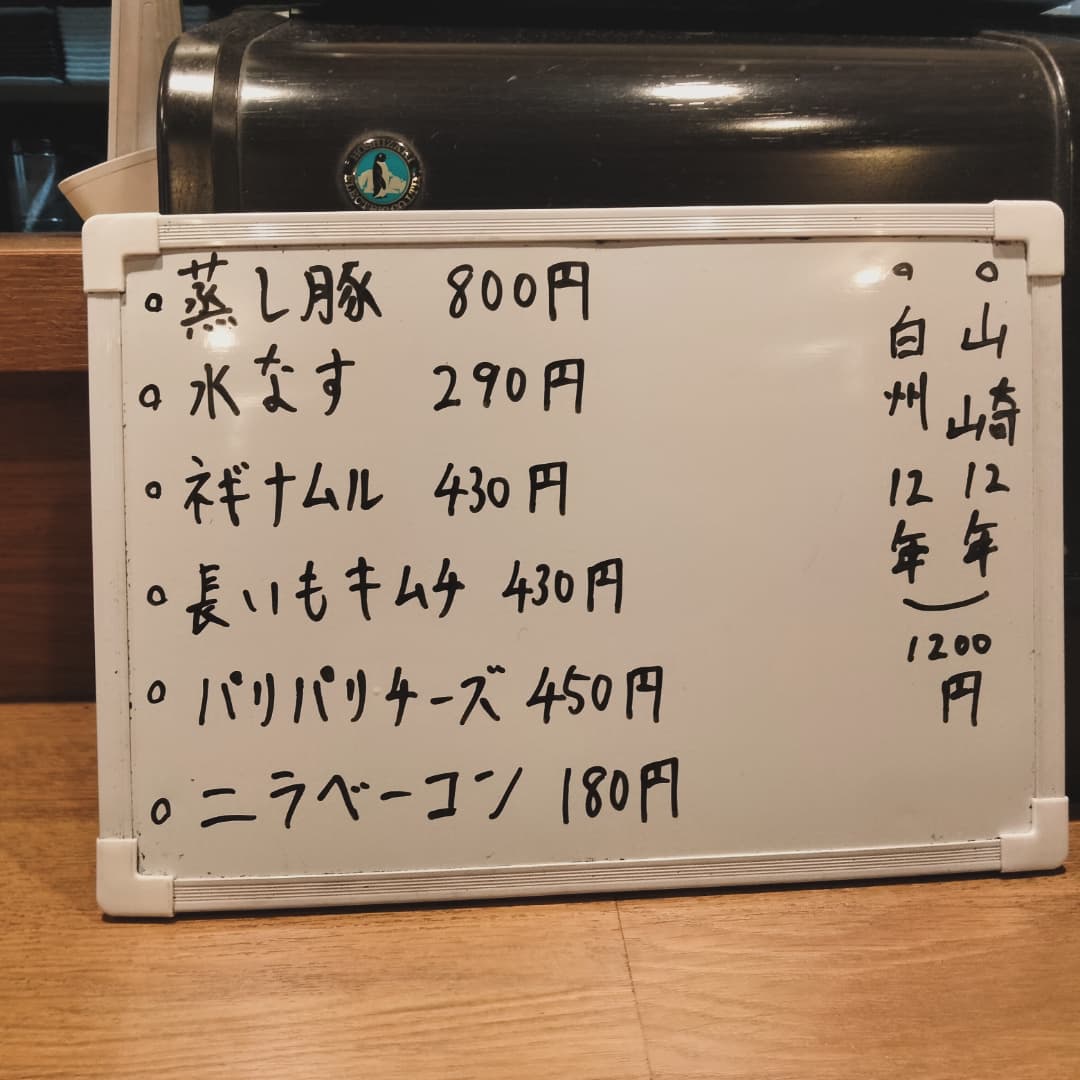 HOSHIZAKI
ELECTRIC CO., LTD.
○蒸し豚 800円
○水なす 290円
○ネギナムル 430円
○長いもキムチ 430円
○パリパリチーズ 450円
○ニラベーコン 180円
○山崎12年
○白州12年
1200円